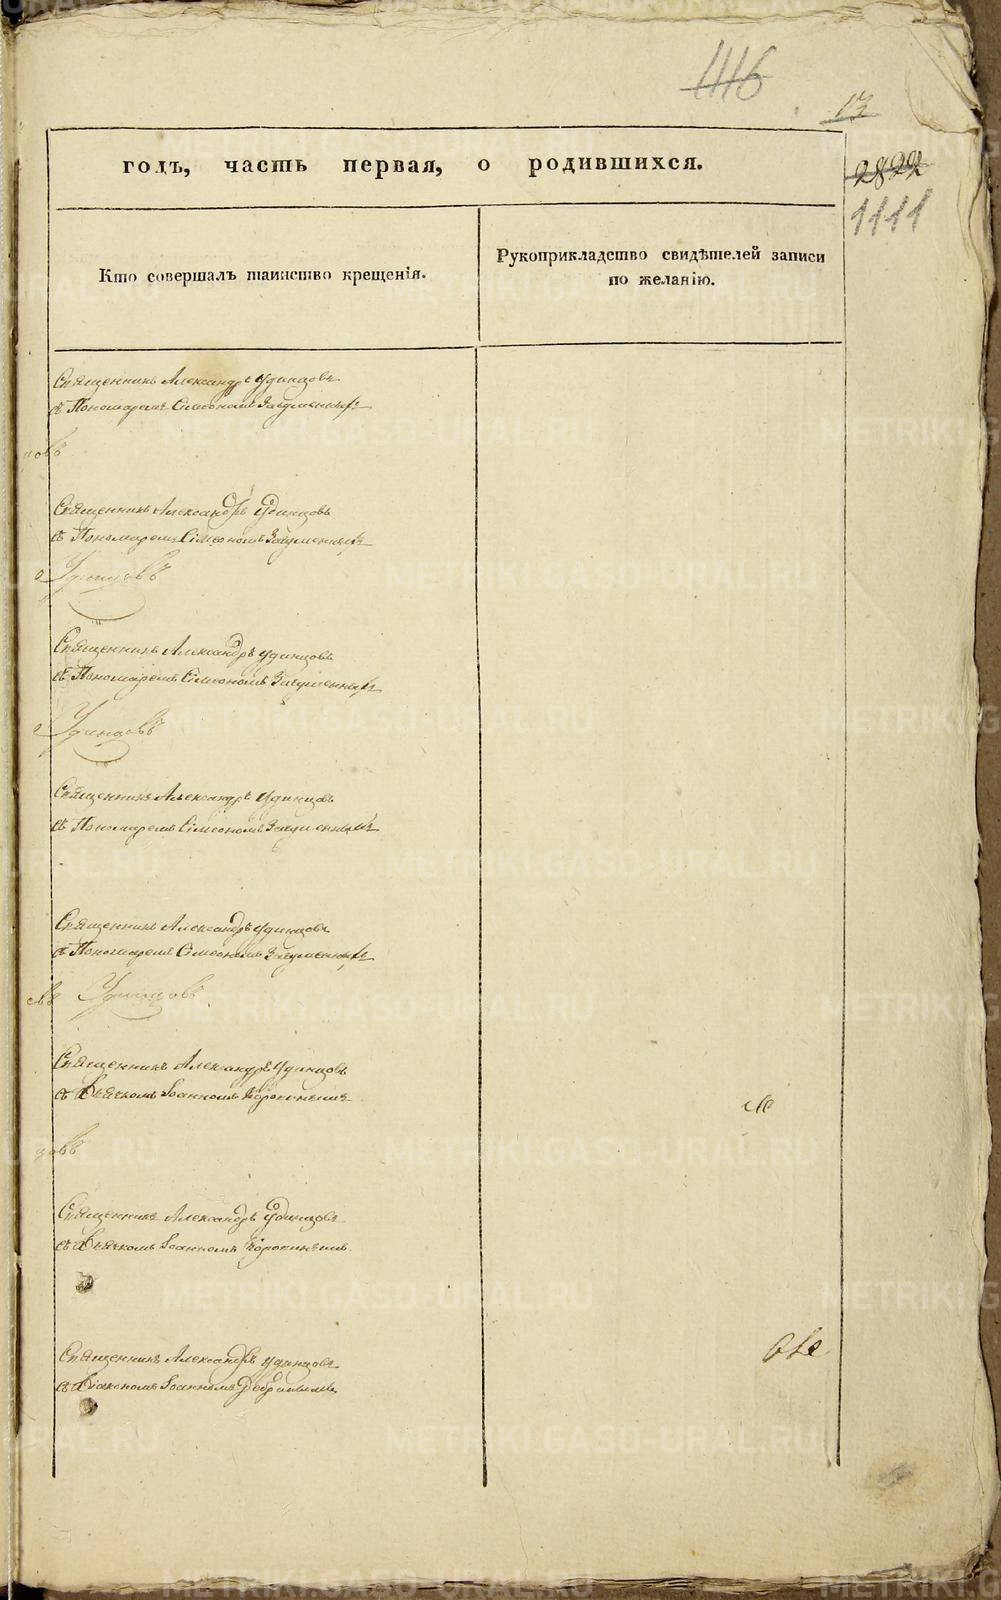 1116
13
годъ, часть первая, о родившихся.
2822
1111
Кто совершалъ таинство крещенія.
Рукоприкладство свидѣтелей записи
по желанію.
Священникъ Александръ Удинцовъ
съ Пономаремъ Сімеономъ
овъ
Священникъ Александръ Удинцовъ
съ Пономаремъ Сімеономъ
Удинцовъ
Священникъ Александръ Удинцовъ
съ Пономаремъ Сімеономъ
Удинцовъ
Священникъ Александръ Удинцовъ
съ Пономаремъ Сімеономъ
Священникъ Александръ Удинцовъ
съ Пономаремъ Сімеономъ
въ Удинцовъ
Священникъ Александръ Удинцовъ
съ Дьячкомъ Іоанномъ
довъ
Священникъ Александръ Удинцовъ
съ Дьячкомъ Іоанномъ
Священникъ Александръ Удинцовъ
съ Діакономъ Іоанномъ
METRIKI.GASO-URAL.RU